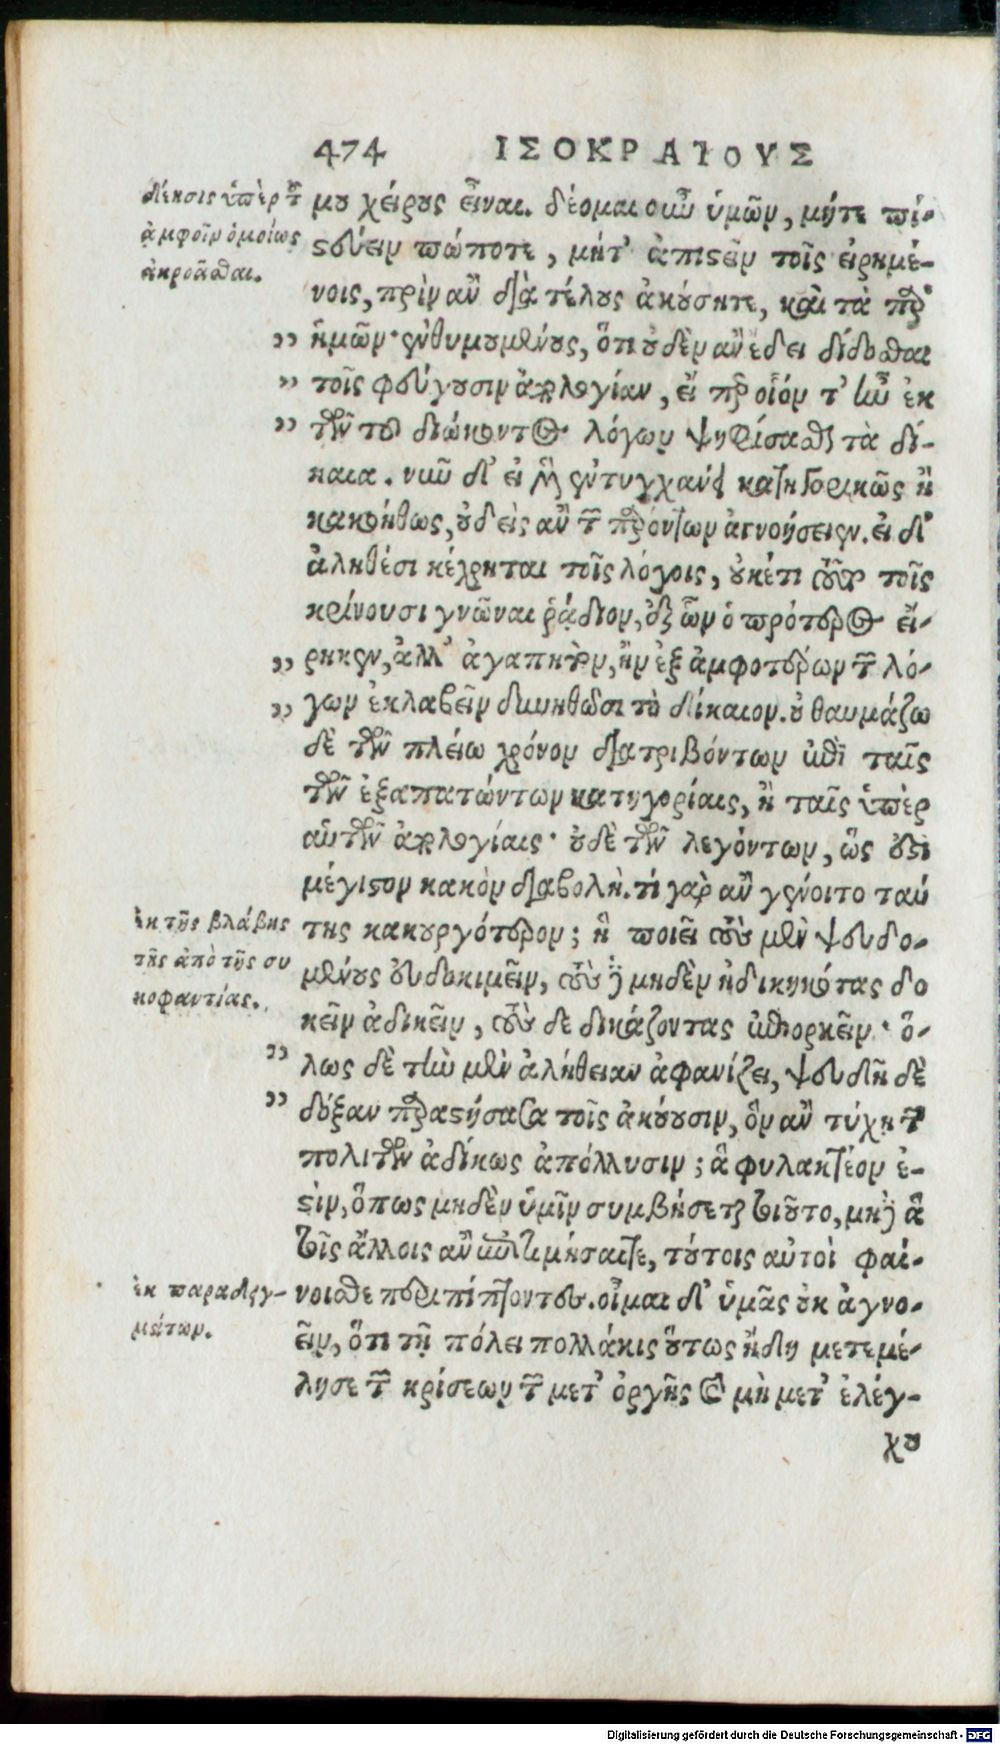 474 ΙΣΟΚΡΑΤΟΥΣ
δέησις ὑπὲρ τοῦ
ἀμφοῖν ὁμοίως
ἀκροᾶσθαι.
μου χείρους εἶναι. δέομαι οὖν ὑμῶν, μήτε πι-
στεύειν πώποτε, μήτ' ἀπιστεῖν τοῖς εἰρημέ-
νοις, πρὶν ἂν διὰ τέλους ἀκούσητε, καὶ τὰ παρ'
„ ἡμῶν· ἐνθυμουμένους, ὅτι οὐδὲν ἂν ἔδει δίδοσθαι
„ τοῖς φεύγουσιν ἀπολογίαν, εἴ περ οἷόν τ' ἦν ἐκ
„ τῶν τοῦ διώκοντος λόγων ψηφίσασθαι τὰ δί-
καια. νῦν δ' εἰ μὲν ἐντυγχάνει κατηγορικῶς ἢ
κακοήθως, οὐδεὶς ἂν τῶν παρόντων ἀγνοήσειεν. εἰ δ'
ἀληθέσι κέχρηται τοῖς λόγοις, οὐκέτι τοῦτο τοῖς
κρίνουσι γνῶναι ῥᾴδιον, ἐξ ὧν ὁ πρότερος εἴ-
„ ρηκεν, ἀλλ' ἀγαπητὸν, ἢν ἐξ ἀμφοτέρων τῶν λό-
„ γων ἐκλαβεῖν δυνηθῶσι τὸ δίκαιον. οὐ θαυμάζω
δὲ τῶν πλείω χρόνον διατριβόντων ἐπὶ ταῖς
τῶν ἐξαπατώντων κατηγορίαις, ἢ ταῖς ὑπὲρ
αὑτῶν ἀπολογίαις· οὐδὲ τῶν λεγόντων, ὥς ἐστι
μέγιστον κακὸν διαβολή. τί γὰρ ἂν γένοιτο ταύ
ἐκ τῆς βλάβης
τῆς ἀπὸ τῆς συ
κοφαντίας.
της κακουργότερον; ἣ ποιεῖ τοὺς μὲν ψευδο-
μένους εὐδοκιμεῖν, τοὺς δὲ μηδὲν ἠδικηκότας δο
κεῖν ἀδικεῖν, τοὺς δὲ δικάζοντας ἐπιορκεῖν· ὅ-
„ λως δὲ τὴν μὲν ἀλήθειαν ἀφανίζει, ψευδῆ δὲ
„ δόξαν παραστήσασα τοῖς ἀκούουσιν, ὃν ἂν τύχῃ τῶν
πολιτῶν ἀδίκως ἀπόλλυσιν; ἃ φυλακτέον ἐ-
στὶν, ὅπως μηδὲν ὑμῖν συμβήσεται τοιοῦτο, μηδ' ἃ
τοῖς ἄλλοις ἂν ἐπιτιμήσαιτε, τούτοις αὐτοὶ φαί-
ἐκ παραδειγ-
μάτων.
νοισθε περιπίπτοντες. οἶμαι δ' ὑμᾶς οὐκ ἀγνο-
εῖν, ὅτι τῇ πόλει πολλάκις οὕτως ἤδη μετεμέ-
λησε τῶν κρίσεων τῶν μετ' ὀργῆς καὶ μὴ μετ' ἐλέγ-
χου
Digitalisierung gefördert durch die Deutsche Forschungsgemeinschaft - DFG